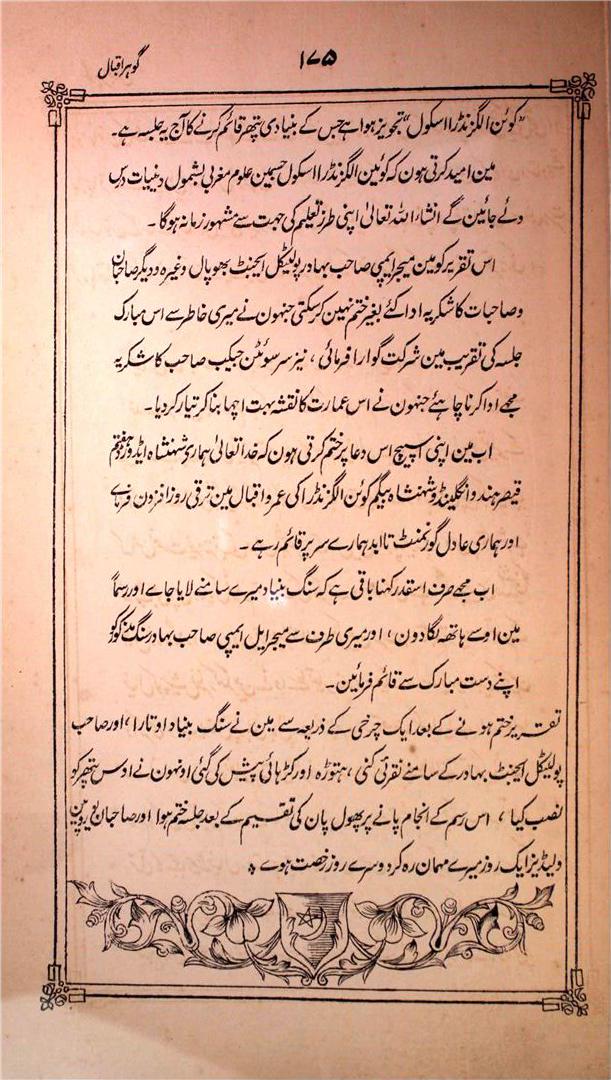 گوہر اقبال
۱۷۵
”کوئن الگزنڈرا اسکول“ تجویز ہوا ہے جس کے بنیادی پتھر قائم کرنے کا آج یہ جلسہ ہے۔
مین امید کرتی ہون کہ کوئین الگزنڈرا اسکول جسمین علوم مغربی بشمول دینیات درس
دئے جائین گے انشاء اللہ تعالیٰ اپنی طرز تعلیم کی جہت سے مشہور زمانہ ہوگا۔
اس تقریر کو مین میجر ایمپی صاحب بہادر پولٹیکل ایجنٹ بھوپال وغیرہ و دیگر صاحبان
و صاحبات کا شکریہ ادا کئے بغیر ختم نہین کرسکتی جنہون نے میری خاطر سے اس مبارک
جلسہ کی تقریب مین شرکت گوارا فرمائی، نیز سر سوئٹن جیکب صاحب کا شکریہ
مجھے ادا کرنا چاہئے جنہون نے اس عمارت کا نقشہ بہت اچھا بنا کر تیار کردیا۔
اب مین اپنی اسپیچ اس دعا پر ختم کرتی ہون کہ خدا تعالیٰ ہماری شہنشاہ ایڈورڈ ہفتم
قیصر ہند و انگلینڈ و شہنشاہ بیگم کوئن الگزنڈرا کی عمر و اقبال مین ترقی روز افزون فرمائے
اور ہماری عادل گورنمنٹ تا ابد ہمارے سر پر قائم رہے۔
اب مجھے صرف اسقدر کہنا باقی ہے کہ سنگ بنیاد میرے سامنے لایا جاے اور رسماً
مین اوسے ہاتھ لگا دون، اور میری طرف سے میجر ایل ایمپی صاحب بہادر سنگ مذکور کو
اپنے دست مبارک سے قائم فرمائین۔
تقریر ختم ہونے کے بعد ایک چرخی کے ذریعہ سے مین نے سنگ بنیاد اوتارا، اور صاحب
پولٹیکل ایجنٹ بہادر کے سامنے نقرئی کنی، ہتوڑہ اور کڑہائی پیش کی گئی اونہون نے اوس پتھر کو
نصب کیا، اس رسم کے انجام پانے پر پھول پان کی تقسیم کے بعد جلسہ ختم ہوا اور صاحبان یوروپین
و لیڈیز ایک روز میرے مہمان رہ کر دوسرے روز رخصت ہوے